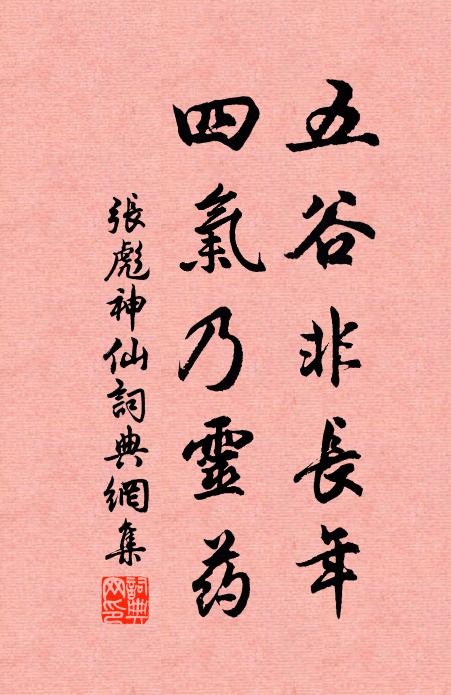 五谷非長年
四氣乃靈药
張彪神仙詞典網集
詞典網印